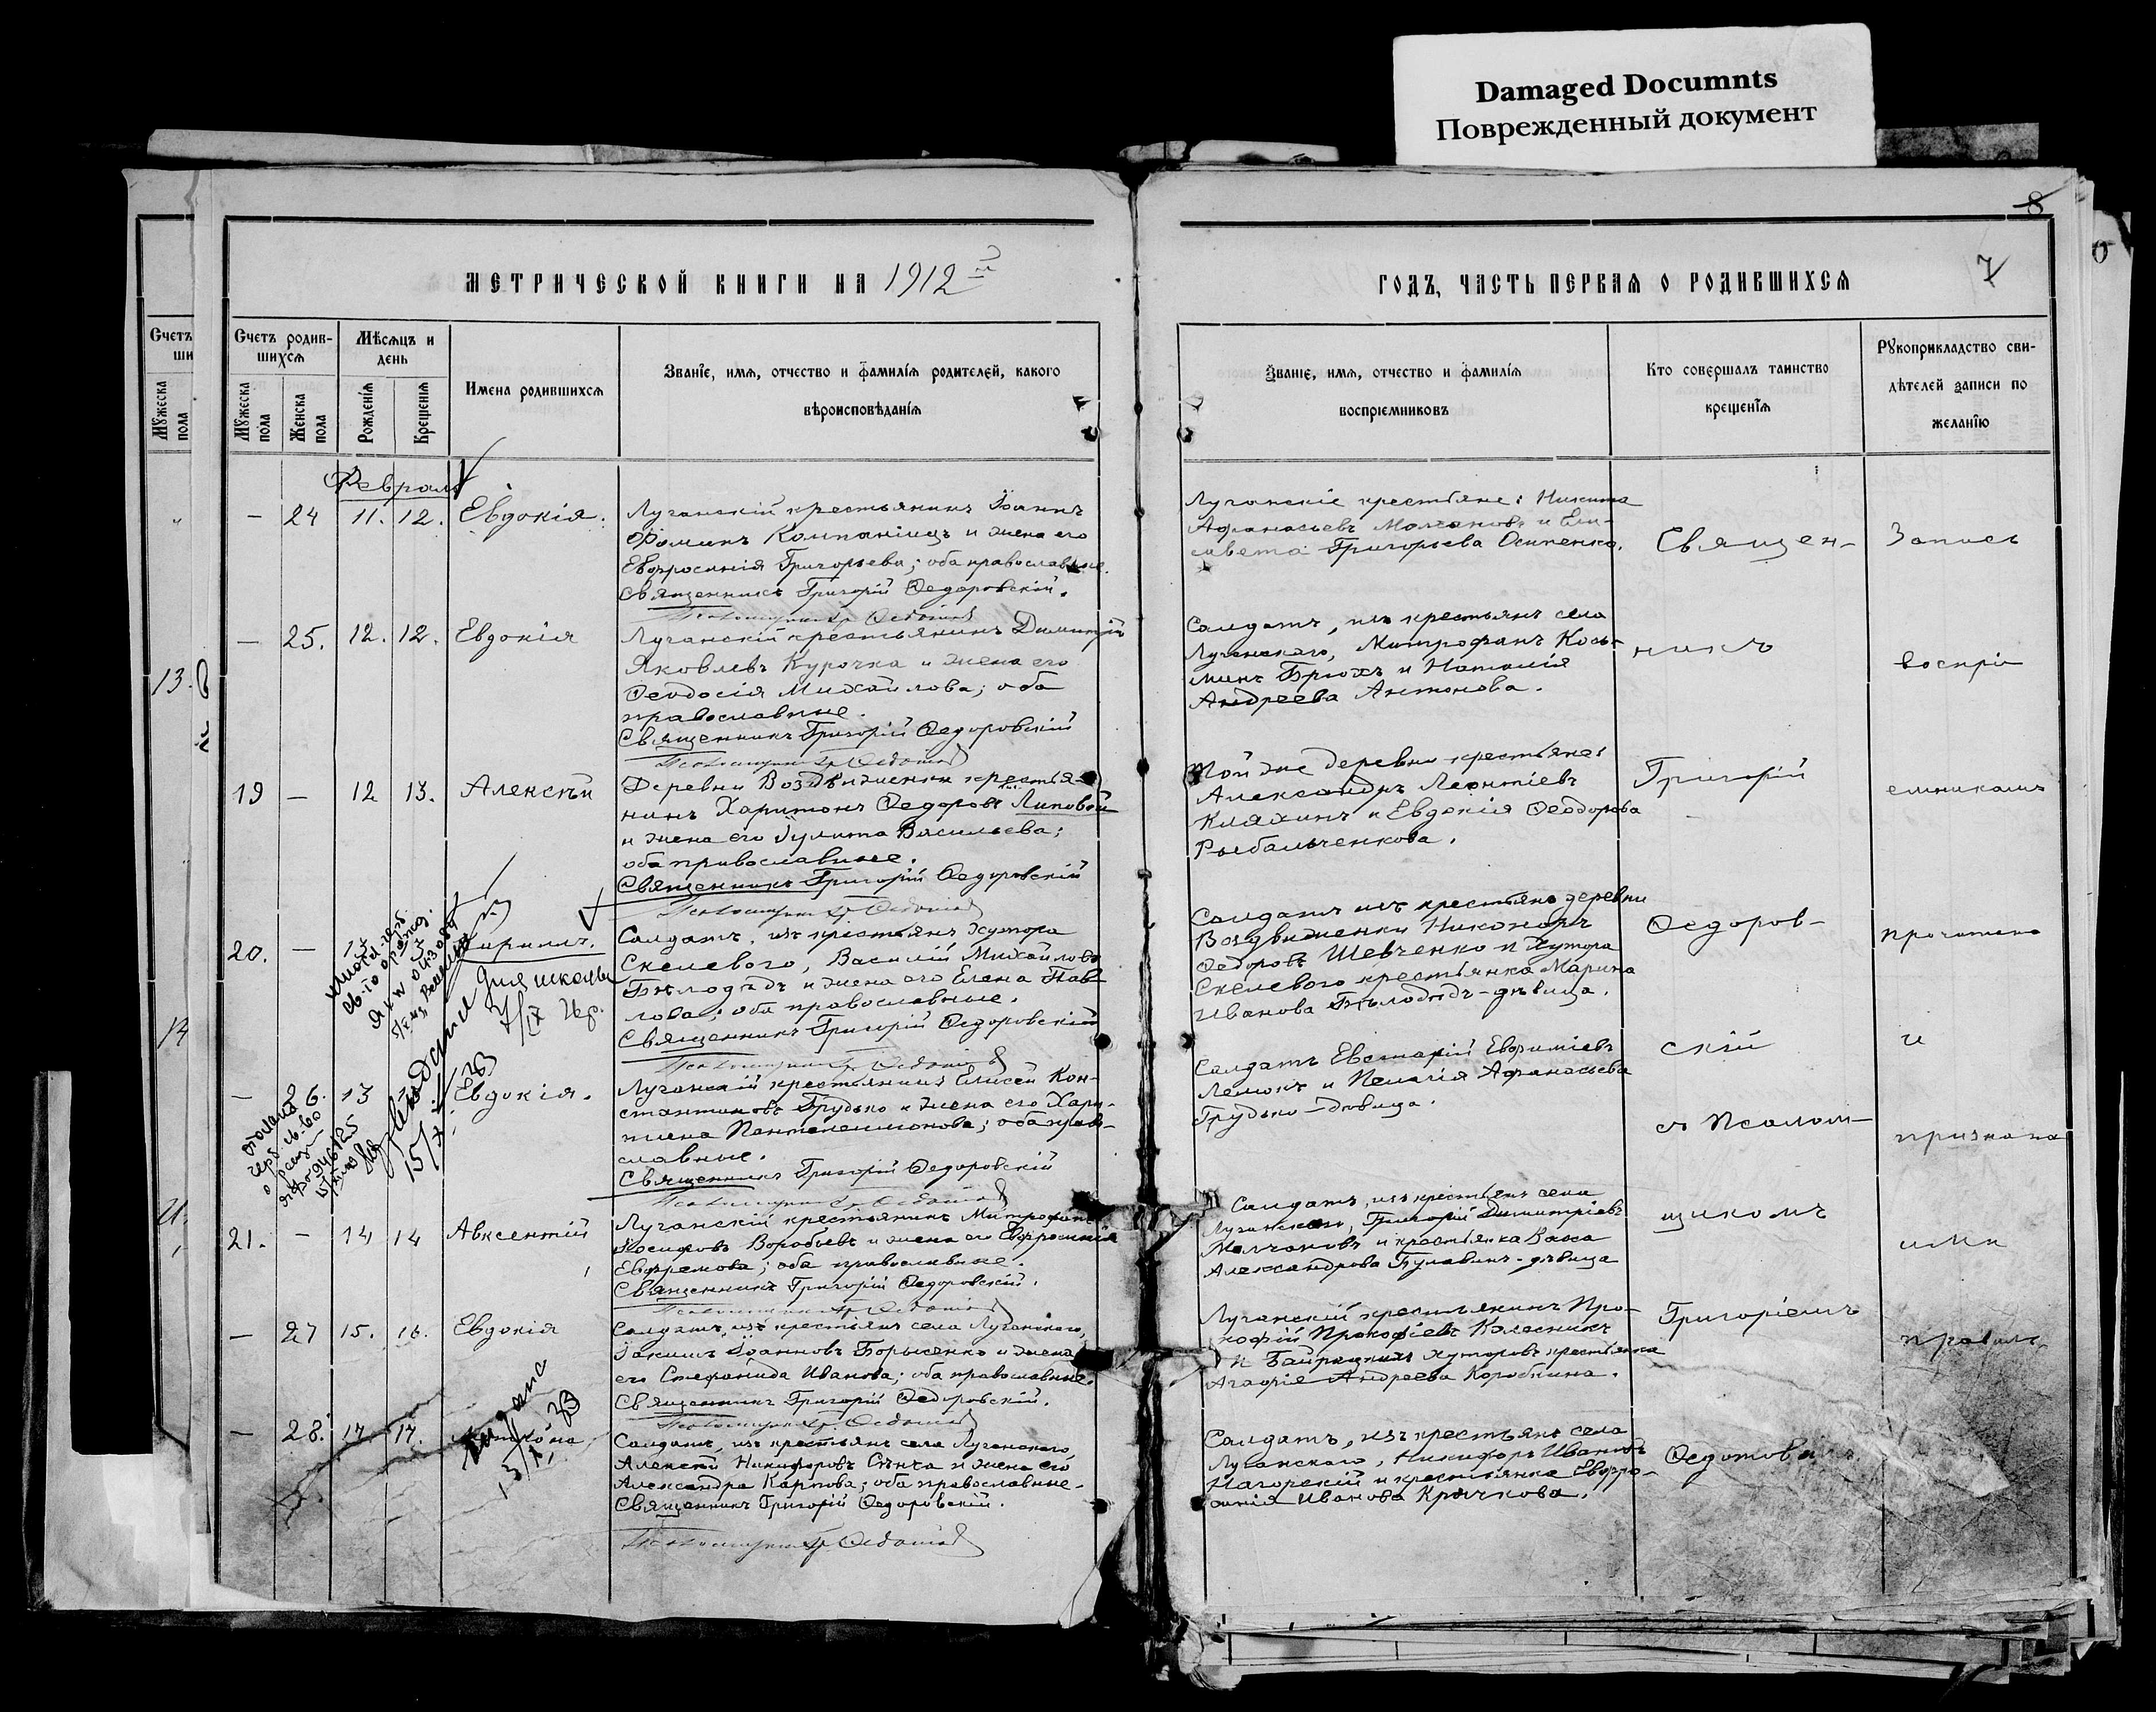 Damaged Documnts
Поврежденный документ
8
МЕТРИЧЕСКОЙ КНИГИ НА 1912 й
ГОДЪ, ЧАСТЬ ПЕРВАЯ О РОДИВШИХСЯ
7
Счетъ
ши
Мужеска пола
Счетъ родив-
шихся
Мужеска пола
Женска пола
Мѣсяцъ и
день
Рожденія
Крещенія
Имена родившихся
Званіе, имя, отчество и фамилія родителей, какого
вѣроисповѣданія
Званіе, имя, отчество и фамилія
воспріемниковъ
Кто совершалъ таинство
крещенія
Рукоприкладство сви-
дѣтелей записи по
желанію
Февраль
— 24 11. 12. Евдокія.
Луганскій крестьянинъ Іоаннъ
Ѳоминъ Компаніецъ и жена его
Евфросинія Григорьева; оба православные.
Священникъ Григорій Ѳедоровскій.
Псаломщикъ Гр. Ѳедотов
Луганскіе крестьяне: Никита
Афанасьевъ Молчановъ и Ели-
савета Григорьева Осипенко.
Священ-
Запись
— 25. 12. 12. Евдокія
Луганскій крестьянинъ Димитрій
Яковлевъ Курочка и жена его
Ѳеодосія Михайлова; оба
православные.
Священникъ Григорій Ѳедоровскій
Псаломщикъ Гр. Ѳедотов
Солдатъ, изъ крестьянъ села
Луганскаго, Митрофанъ Кось-
минъ Брюхъ и Наталія
Андреева Антонова.
никъ
воспрі
13.
19 — 12 13. Алексѣй
Деревни Воздвиженки крестья-
нинъ Харитонъ Ѳедоровъ Липовой
и жена его Іулита Васильева;
оба православные.
Священникъ Григорій Ѳедоровскій
Псаломщикъ Гр. Ѳедотов
Той же деревни крестьяне:
Александръ Леонтіевъ
Кляхинъ и Евдокія Ѳеодорова
Рыбальченкова.
Григорій
емникамъ
20. — 13 Кириллъ.
Солдатъ, изъ крестьянъ хутора
Скелевого, Василій Михайловъ
Бѣлодѣдъ и жена его Елена Пав-
лова; оба православные.
Священникъ Григорій Ѳедоровскій
Псаломщикъ Гр. Ѳедотов
Солдатъ изъ крестьянъ деревни
Воздвиженки Никаноръ
Ѳедоровъ Шевченко и хутора
Скелевого крестьянка Марина
Иванова Бѣлодѣдъ-дѣвица.
Ѳедоров-
прочитана
для школы
14
— 26. 13 Евдокія.
Луганскій крестьянинъ Елисей Кон-
стантиновъ Грудько и жена его Хари-
тина Пантелеимонова; оба право-
славные.
Священникъ Григорій Ѳедоровскій
Псаломщикъ Гр. Ѳедотов
Солдатъ Евстафій Евфиміевъ
Лемокъ и Пелагія Афанасьева
Грудько-дѣвица.
скій
и
съ Псалом-
признана
21. — 14 14 Авксентій
Луганскій крестьянинъ Митрофанъ
Іосифовъ Воробьевъ и жена его Евфросинія
Ефремова; оба православные.
Священникъ Григорій Ѳедоровскій.
Псаломщикъ Гр. Ѳедотов
Солдатъ, изъ крестьянъ села
Луганскаго, Григорій Димитріевъ
Молчановъ и крестьянка Васса
Александрова Булавинъ-дѣвица
щикомъ
ими
— 27 15. 16. Евдокія
Солдатъ, изъ крестьянъ села Луганскаго,
Іакимъ Іоанновъ Борисенко и жена
его Стефанида Иванова; оба православные.
Священникъ Григорій Ѳедоровскій.
Псаломщикъ Гр. Ѳедотов
Луганскій крестьянинъ Про-
кофій Прокофіевъ Колесникъ
и Байрацкихъ хуторовъ крестьянка
Агафія Андреева Коробкина.
Григоріемъ
правиль
— 28. 17. 17.
Солдатъ, изъ крестьянъ села Луганскаго,
Алексѣй Никифоровъ Сѣнча и жена его
Александра Карпова; оба православные.
Священникъ Григорій Ѳедоровскій.
Псаломщикъ Гр. Ѳедотов
Солдатъ, изъ крестьянъ села
Луганскаго, Никифоръ Ивановъ
Нагорскій и крестьянка Евфро-
синія Иванова Крячкова.
Ѳедотовы